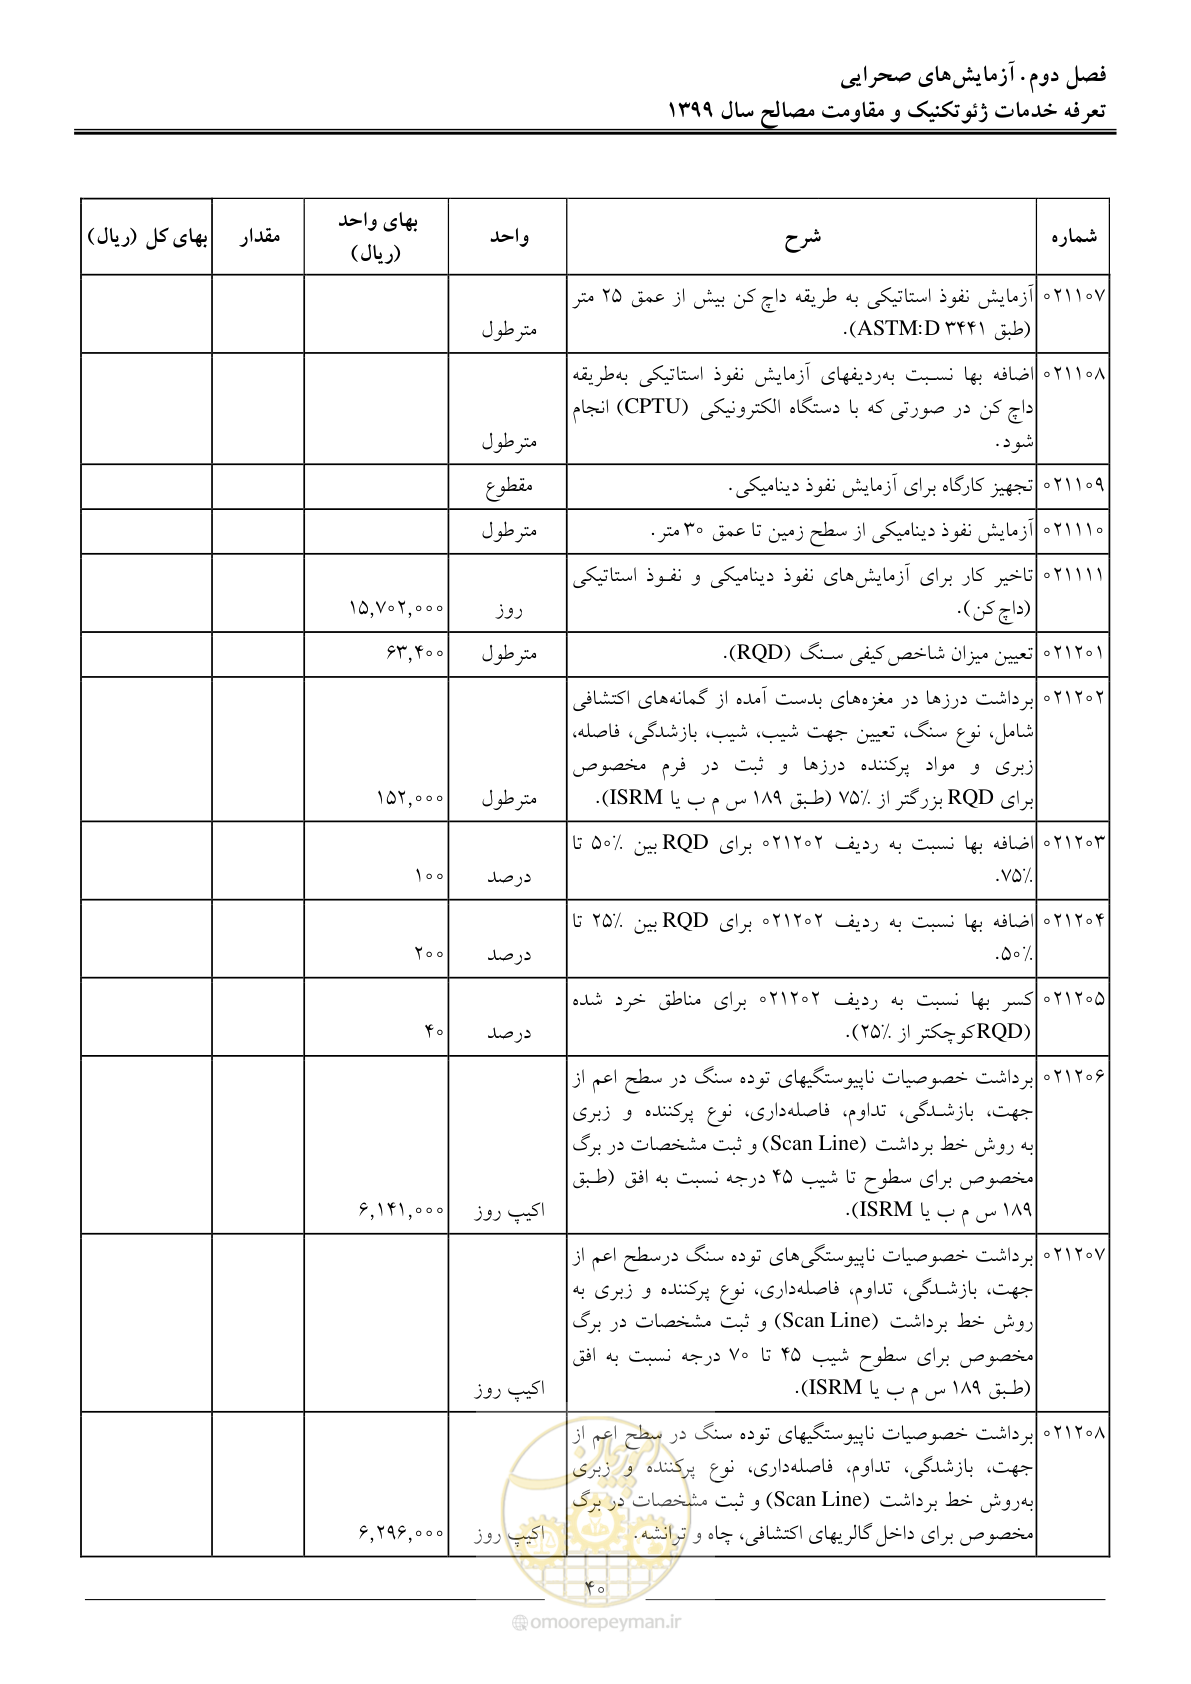 فصل دوم. آزمایش‌های صحرایی
تعرفه خدمات ژئوتکنیک و مقاومت مصالح سال ۱۳۹۹
شماره	شرح	واحد	بهای واحد (ریال)	مقدار	بهای کل (ریال)
۰۲۱۱۰۷	آزمایش نفوذ استاتیکی به طریقه داچ کن بیش از عمق ۲۵ متر
(طبق ASTM:D ۳۴۴۱).	مترطول
۰۲۱۱۰۸	اضافه بها نسبت به‌ردیفهای آزمایش نفوذ استاتیکی به‌طریقه
داچ کن در صورتی که با دستگاه الکترونیکی (CPTU) انجام
شود.	مترطول
۰۲۱۱۰۹	تجهیز کارگاه برای آزمایش نفوذ دینامیکی.	مقطوع
۰۲۱۱۱۰	آزمایش نفوذ دینامیکی از سطح زمین تا عمق ۳۰ متر.	مترطول
۰۲۱۱۱۱	تاخیر کار برای آزمایش‌های نفوذ دینامیکی و نفوذ استاتیکی
(داچ کن).	روز	۱۵,۷۰۲,۰۰۰
۰۲۱۲۰۱	تعیین میزان شاخص کیفی سنگ (RQD).	مترطول	۶۳,۴۰۰
۰۲۱۲۰۲	برداشت درزها در مغزه‌های بدست آمده از گمانه‌های اکتشافی
شامل، نوع سنگ، تعیین جهت شیب، شیب، بازشدگی، فاصله،
زبری و مواد پرکننده درزها و ثبت در فرم مخصوص
برای RQD بزرگتر از ۷۵٪ (طبق ۱۸۹ س م ب یا ISRM).	مترطول	۱۵۲,۰۰۰
۰۲۱۲۰۳	اضافه بها نسبت به ردیف ۰۲۱۲۰۲ برای RQD بین ۵۰٪ تا
۷۵٪.	درصد	۱۰۰
۰۲۱۲۰۴	اضافه بها نسبت به ردیف ۰۲۱۲۰۲ برای RQD بین ۲۵٪ تا
۵۰٪.	درصد	۲۰۰
۰۲۱۲۰۵	کسر بها نسبت به ردیف ۰۲۱۲۰۲ برای مناطق خرد شده
(RQD کوچکتر از ۲۵٪).	درصد	۴۰
۰۲۱۲۰۶	برداشت خصوصیات ناپیوستگیهای توده سنگ در سطح اعم از
جهت، بازشدگی، تداوم، فاصله‌داری، نوع پرکننده و زبری
به روش خط برداشت (Scan Line) و ثبت مشخصات در برگ
مخصوص برای سطوح تا شیب ۴۵ درجه نسبت به افق (طبق
۱۸۹ س م ب یا ISRM).	اکیپ روز	۶,۱۴۱,۰۰۰
۰۲۱۲۰۷	برداشت خصوصیات ناپیوستگی‌های توده سنگ درسطح اعم از
جهت، بازشدگی، تداوم، فاصله‌داری، نوع پرکننده و زبری به
روش خط برداشت (Scan Line) و ثبت مشخصات در برگ
مخصوص برای سطوح شیب ۴۵ تا ۷۰ درجه نسبت به افق
(طبق ۱۸۹ س م ب یا ISRM).	اکیپ روز
۰۲۱۲۰۸	برداشت خصوصیات ناپیوستگیهای توده سنگ در سطح اعم از
جهت، بازشدگی، تداوم، فاصله‌داری، نوع پرکننده و زبری
به‌روش خط برداشت (Scan Line) و ثبت مشخصات در برگ
مخصوص برای داخل گالریهای اکتشافی، چاه و ترانشه.	اکیپ روز	۶,۲۹۶,۰۰۰
امور پیمان
۴۰
omoorepeyman.ir